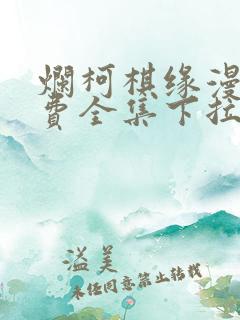 烂柯棋缘漫
费全集下拉
溢美
未经同意禁止转载